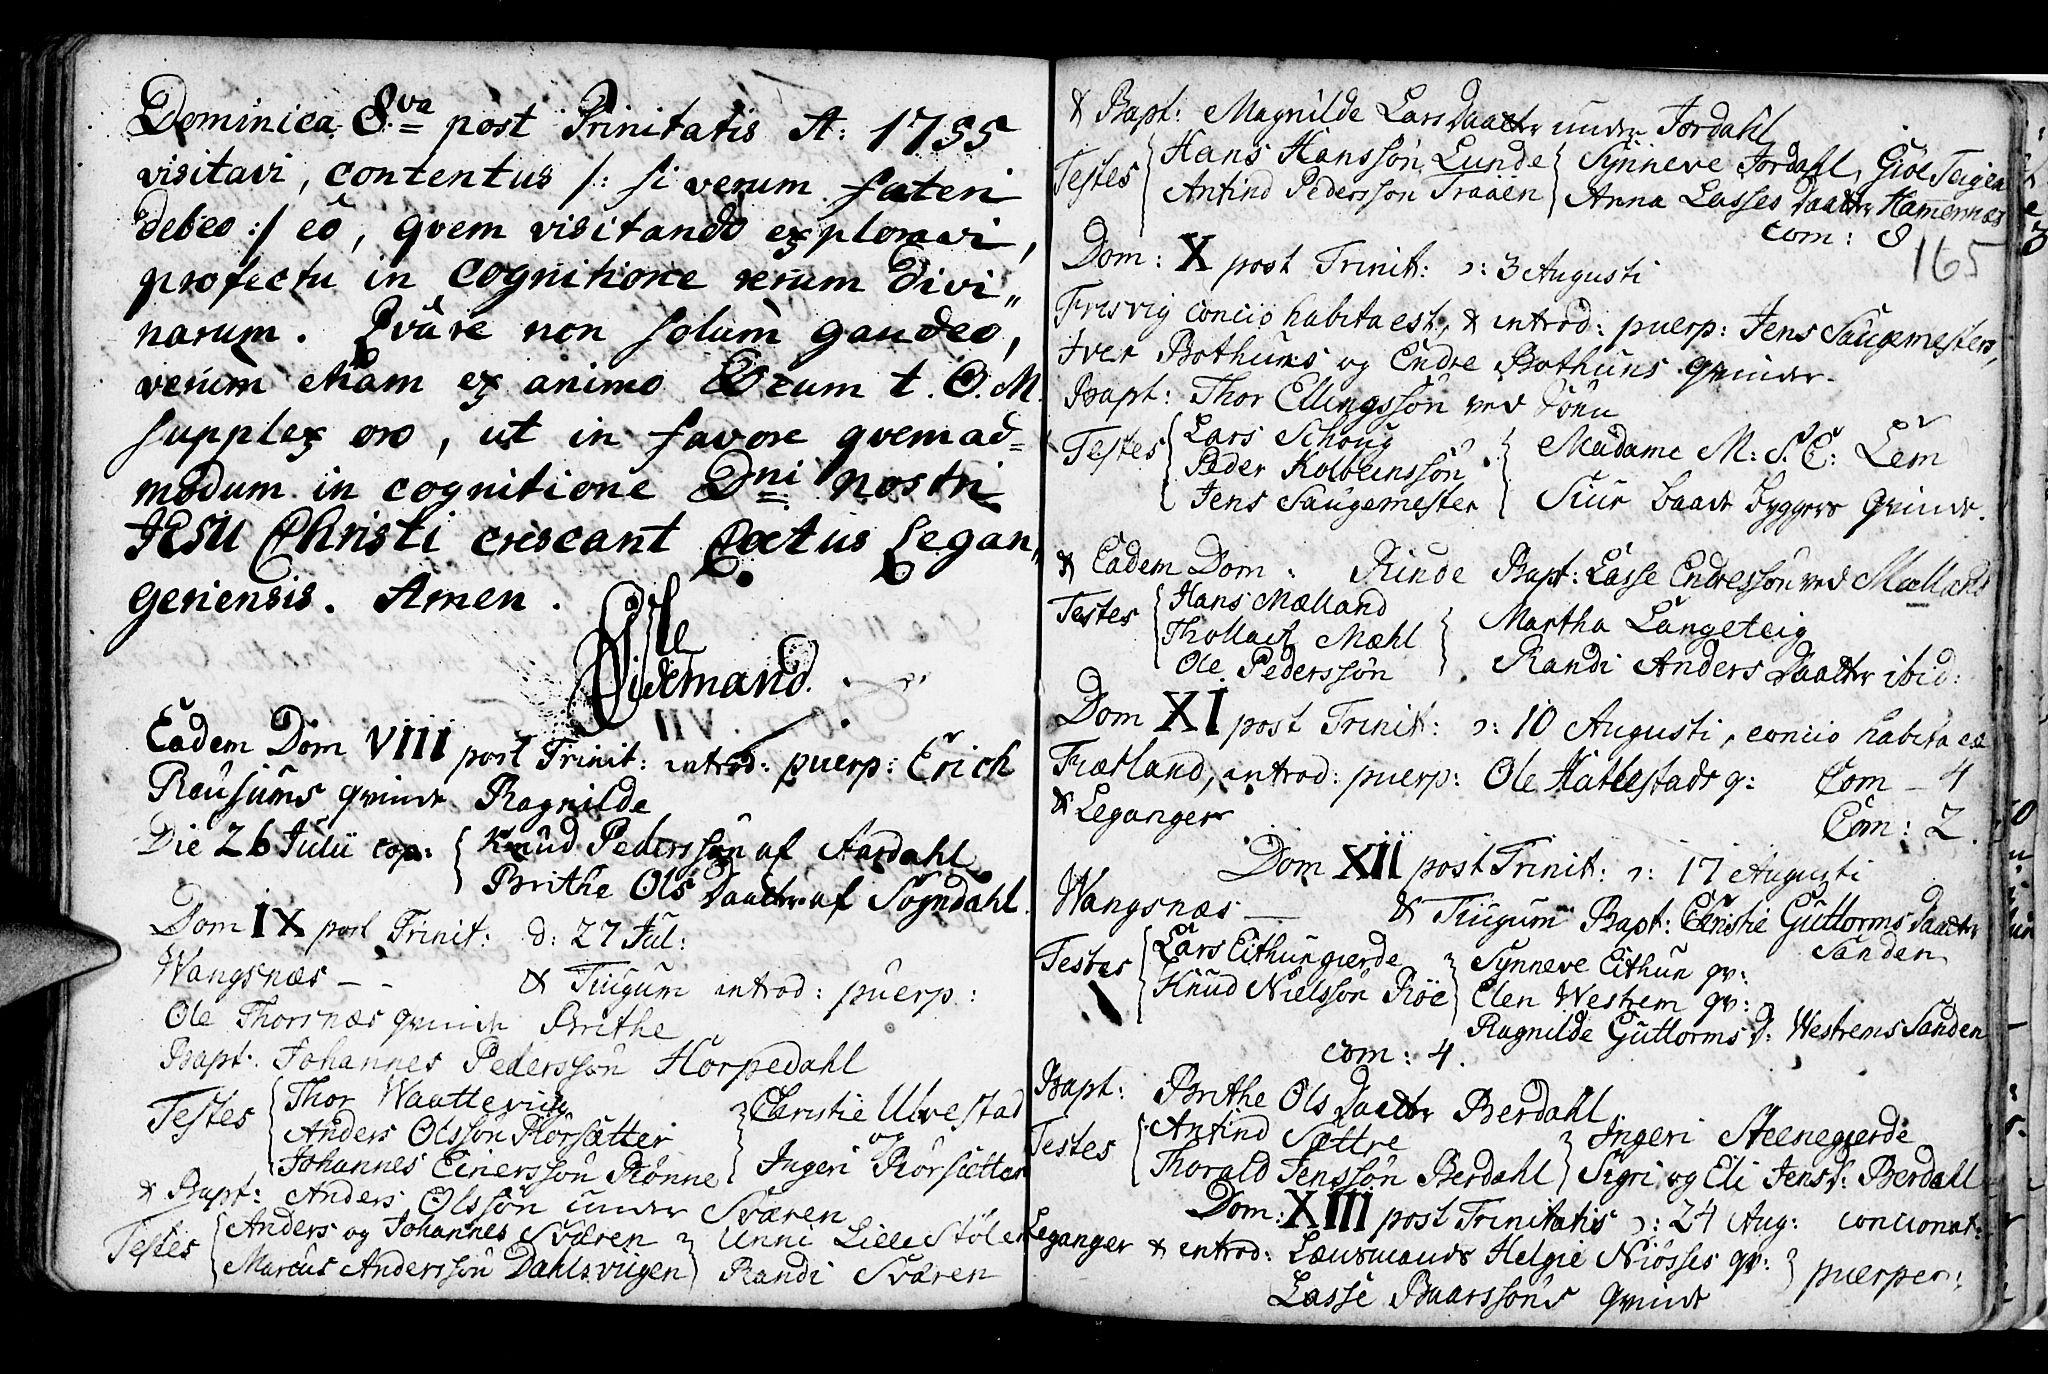 Dominica 8va post Trinitatis A: 1755
visitavi, contentus /: si verum fateri
debeo :/ eô, qvem visitando exploravi,
profectu in cognitione rerum divi„
narum. Qvâre non solùm gaudeo,
verùm etiam ex animo Deum t. O. M.
supplex oro, ut in favore qvemad=
modum in cognitione Dni nostri
JESU Christi crescant Coetus Legan„
geriensis. Amen.
Widemand.
Eadem Dom VIII post Trinit: introd: puerp: Erich
Reusums qvinde Ragnilde
Die 26 Julii cop: { Knud Pedersson af Aardahl
Brithe Ols Daatter af Sogndahl.
Dom IX post Trinit: d: 27 Jul:
Wangsnæs - - & Tiugum introd: puerp:
Ole Thorsnæs qvinde Brithe
Bapt. Johannes Pedersson Hørpedahl
Testes { Thor Waattevig } Christie Ulvestad
Anders Olsson Rørsætter og
Johannes Einersson Rønne } Ingeri Rørsætter
& Bapt: Anders Olsson under Sværen
Testes { Anders og Johannes Sværen } Unni Lille Stølen
Marcus Andersson Dahlsvigen } Randi Sværen
& Bapt: Magnilde Lars Daatter under Jordahl
Testes { Hans Hansson Lunde } Synneve Jordahl, Giøe Teigen
Anfind Pedersson Traaen } Anna Lasses Daatter Hamernæs
com: 8
165
Dom: X post Trinit: ɔ: 3 Augusti
Fresvig concio habita est, & introd: puerp: Jens Saugemesters,
Iver Bothuns og Endre Bothuns qvinder.
Bapt: Thor Ellingsson ved
Testes { Lars Schoug } Madame M: S. E: Lem
Peder Kolbeinsson
Jens Saugemester } Siur baade byggers qvinde.
& Eadem Dom: Rinde Bapt: Lasse Endresson ved Mælland
Testes { Hans Mælland } Martha Langeteig
Thollact Mæhl
Ole Pedersson } Randi Anders Daatter ibid:
Dom XI post Trinit: ɔ: 10 Augusti, concio habita est
Fiærland, introd: puerp: Ole Hatlestads q: Com - 4
& Leganger Com: 2.
Dom XII post Trinit: ɔ: 17 Augusti
Wangsnæs — & Tiugum Bapt: Christie Guttorms Daatter
Sanden
Testes { Lars Eithungierde } Synneve Eithun qv:
Knud Nielsson Røe } Elen Westrem qv:
Ragnilde Guttorms D: Westrems Sanden
com: 4.
Bapt: Brithe Ols Daatter Berdahl
Testes { Anfind Sættre } Ingeri Steenegierde
Thorald Jensson Berdahl } Sigri og Eli Jens D: Berdahl
Dom: XIII post Trinitatis ɔ: 24 Aug: concionat:
Leganger & introd: Lænsmands Helgie Niøsses qv: } puerper:
Lasse Baarssons qvinde